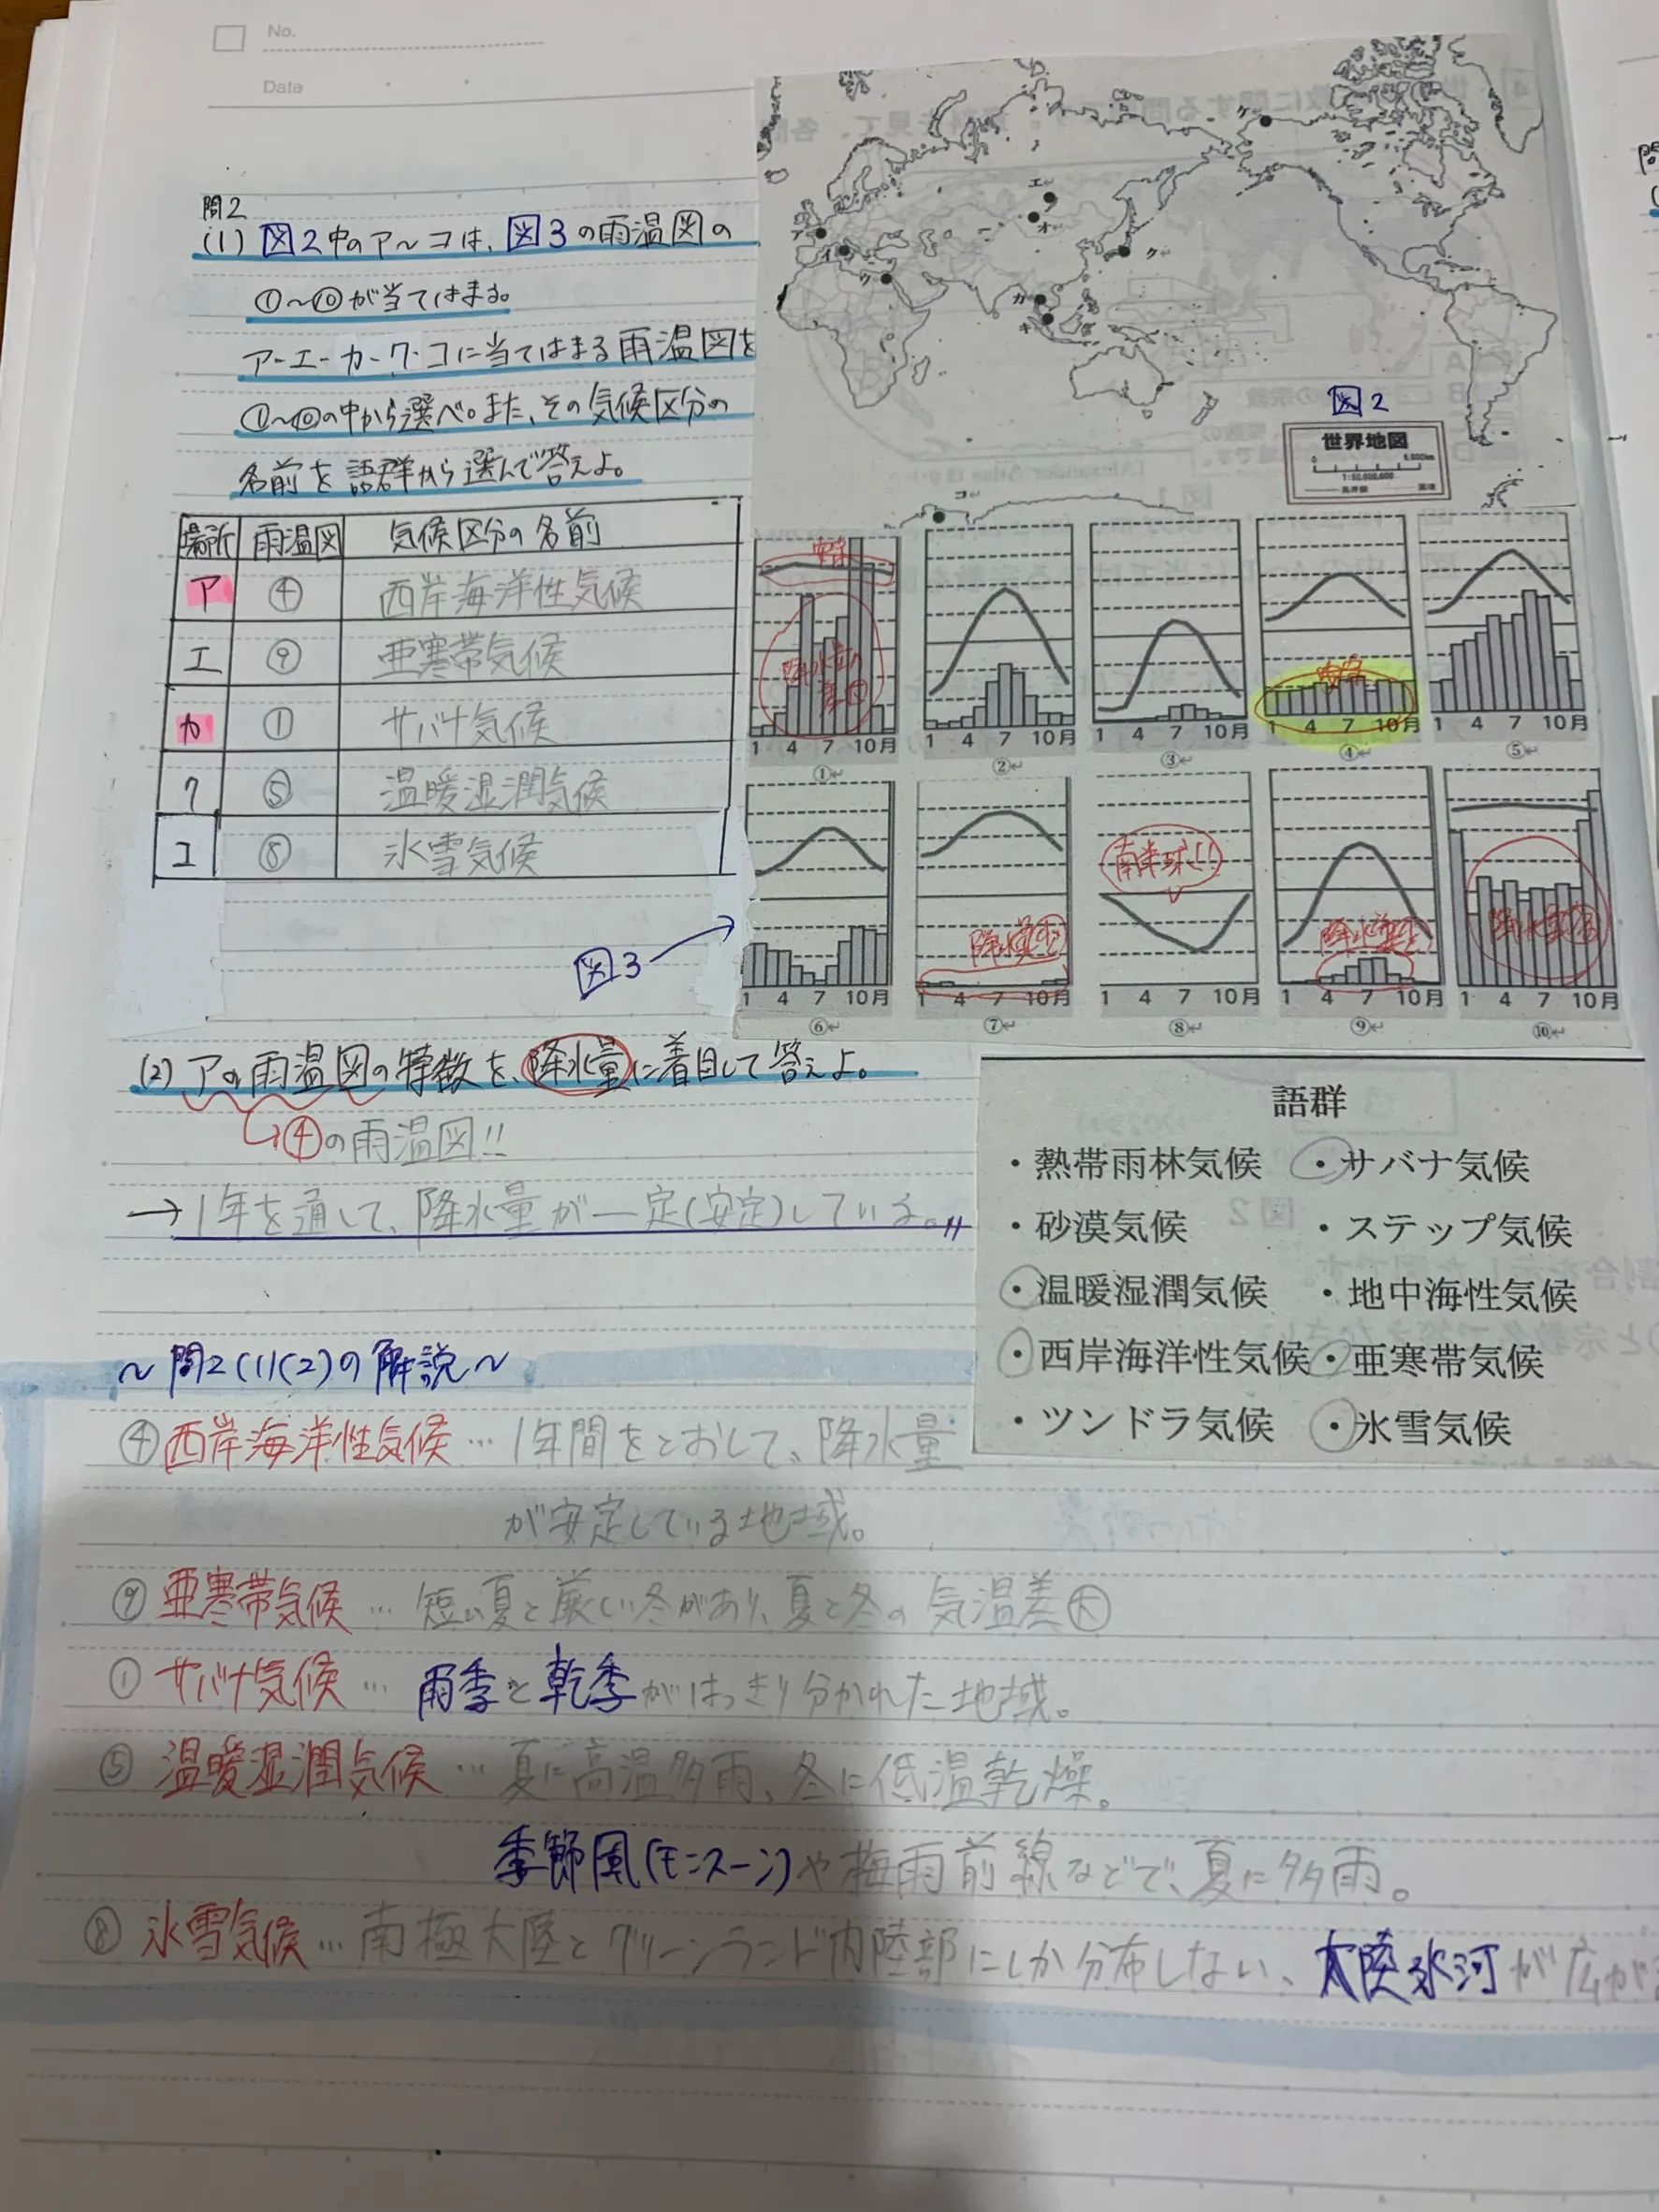 No.
Date
問2
(1) 図2中のア～コは、図3の雨温図の
①～⑩が当てはまる。
ア・エ・カ・ク・コに当てはまる雨温図を
①～⑩の中から選べ。また、その気候区分の
名前を語群から選んで答えよ。
場所 雨温図 気候区分の名前
ア ④ 西岸海洋性気候
エ ⑨ 亜寒帯気候
カ ① サバナ気候
ク ⑤ 温暖湿潤気候
コ ⑧ 氷雪気候
図3
ア
イ
ウ
エ
オ
カ
キ
ク
ケ
コ
図2
世界地図
0 5,000km
降水量の
1 4 7 10月
①
1 4 7 10月
②
1 4 7 10月
③
1 4 7 10月
④
1 4 7 10月
⑤
1 4 7 10月
⑥
降水量
1 4 7 10月
⑦
南半球!!
1 4 7 10月
⑧
降水量
1 4 7 10月
⑨
降水量
1 4 7 10月
⑩
(2) アの雨温図の特徴を、降水量に着目して答えよ。
④の雨温図!!
→1年を通して、降水量が一定(安定)している。
語群
・熱帯雨林気候 ・サバナ気候
・砂漠気候 ・ステップ気候
・温暖湿潤気候 ・地中海性気候
・西岸海洋性気候 ・亜寒帯気候
・ツンドラ気候 ・氷雪気候
～問2(1)(2)の解説～
④西岸海洋性気候…1年間をとおして、降水量
が安定している地域。
⑨亜寒帯気候…短い夏と厳しい冬があり、夏と冬の気温差大
①サバナ気候…雨季と乾季がはっきり分かれた地域。
⑤温暖湿潤気候…夏に高温多雨、冬に低温乾燥。
季節風(モンスーン)や梅雨前線などで、夏に多雨。
⑧氷雪気候…南極大陸とグリーンランド内陸部にしか分布しない、大陸氷河が広が